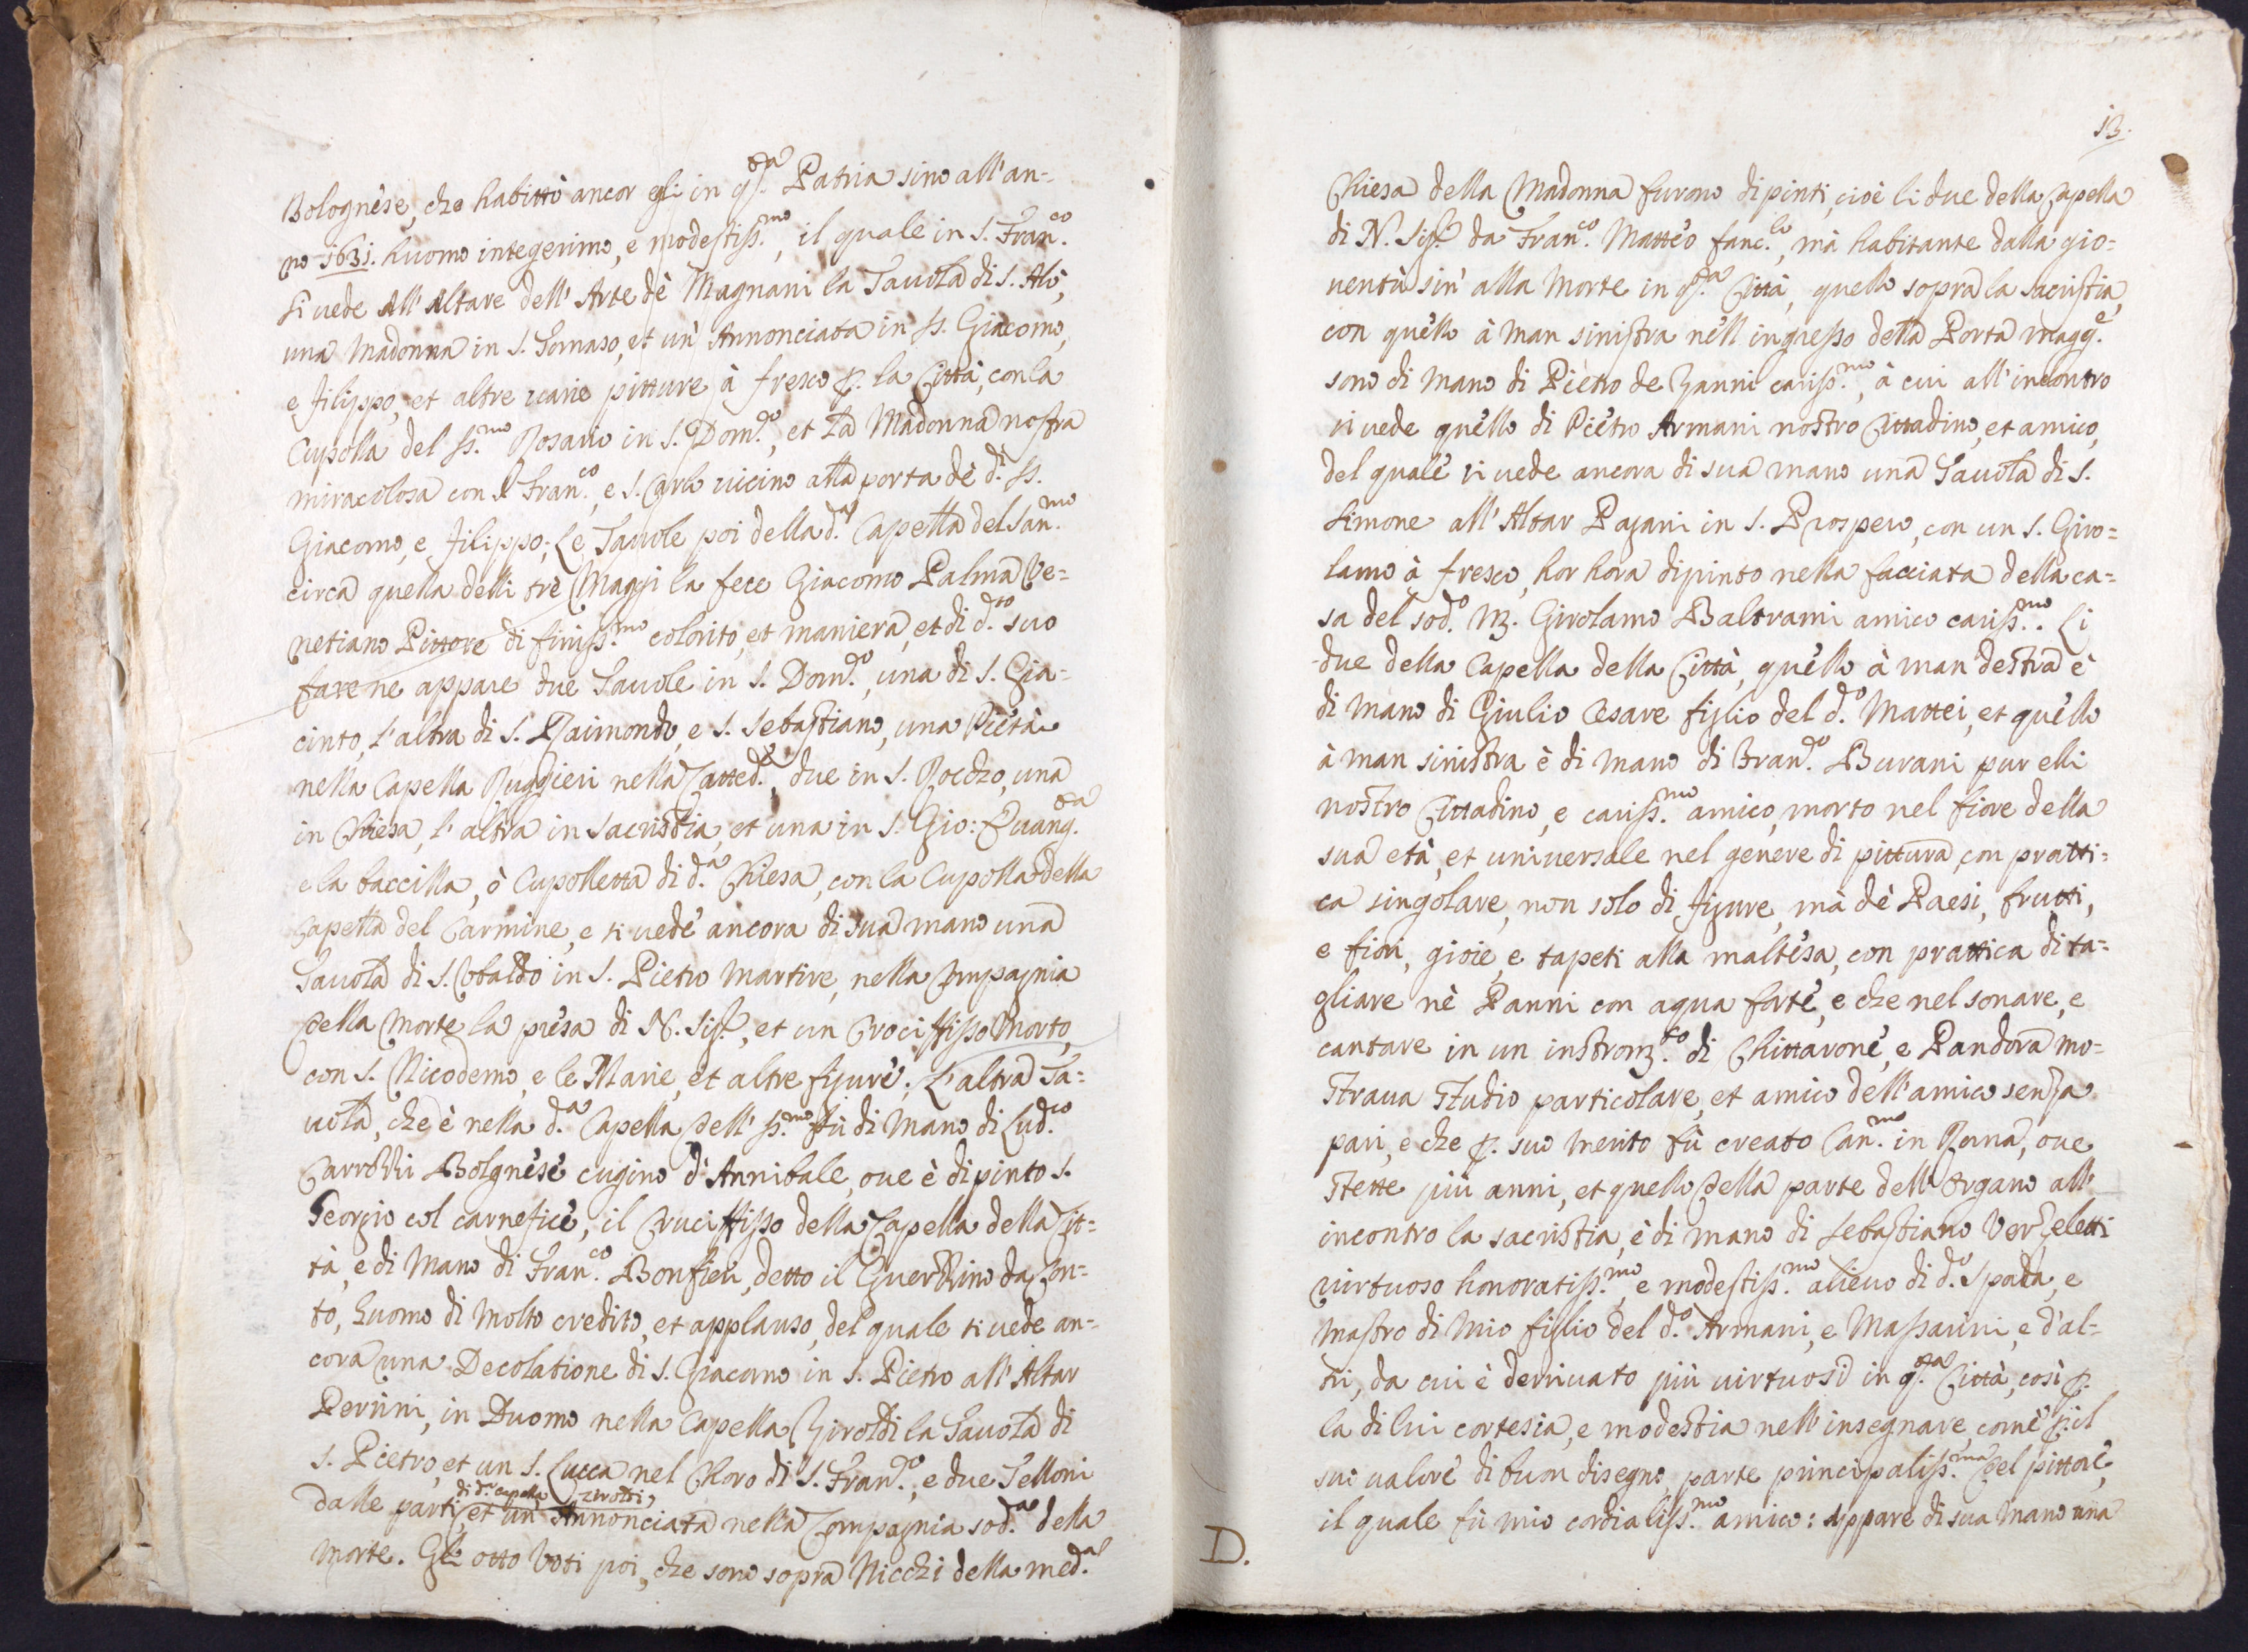 Bolognese, che habittò ancor egli in q.sta Patria sino all'an=
no 1631. huomo integerimo, e modestiss.mo, il quale in S. Fran.co
si uede all'Altare dell'Arte dè Magnani la Tauola di S. Alò,
una Madonna in S. Tomaso, et un' Annonciata in SS. Giacomo,
e Filippo, et altre uarie pitture à fresco p. la Città, con la
Cupolla del SS.mo Rosario in S. Dom.co, et la Madonna nostra
miracolosa con S. Fran.co, e S. Carlo uicino alla porta dè d.i SS.
Giacomo, e Filippo; Le Tauole poi della d.a Capella del San.mo
circa quella delli trè Maggi la fece Giacomo Palma Ve=
netiano Pittore di finiss.mo colorito, et maniera, et di d.to suo
fare ne appare due Tauole in S. Dom.co, una di S. Gia=
cinto, l'altra di S. Raimondo, e S. Sebastiano, una Pietà
nella Capella Ruggieri nella Catted.le, due in S. Roccho, una
in Chiesa, l'altra in Sacristia, et una in S. Gio: Euang.sta
e la baccilla, ò Cupolletta di d.a Chiesa, con la Cupolla della
Capella del Carmine, e si uede ancora di sua mano una
Tauola di S. Vbaldo in S. Pietro Martire, nella Compagnia
della Morte la presa di N. Sig.re, et un Crociffisso Morto,
con S. Nicodemo, e le Marie, et altre figure; L'altra Ta=
uola, che è nella d.a Capella dell' SS.mo fù di Mano di Lud.co
Carrozzi Bolgnese cugino d'Annibale, oue è dipinto S.
Georgio col carnefice, il Cruciffisso della Capella della Cit=
tà, e di Mano di Fran.co Bonfieri, detto il Guerzzino da Cen=
to, huomo di molto credito, et applauso, del quale si uede an=
cora una Decolatione di S. Giacomo in S. Pietro all'Altar
Perini, in Duomo nella Capella Ziroldi la Tauola di
S. Pietro, et un S. Lucca nel Choro di S. Fran.co, e due Telloni
di d.a Capella Ziroldi,
dalle parti, et un' Annonciata nella Compagnia sod.a della
Morte. Gli otto Voti poi, che sono sopra Nicchi della med.a
13.
Chiesa della Madonna furono dipinti, cioè li due della Capella
di N. Sig.re da Fran.co Matteo fanc.lo, mà habitante dalla gio=
uentù sin' alla Morte in q.sta Città, quello sopra la sacristia,
con quello à man sinistra nell ingresso della Porta magg.e
sono di mano di Pietro de Zanni cariss.mo, à cui all'incontro
si uede quello di Pietro Armani nostro Cittadino, et amico,
del quale si uede ancora di sua mano una Tauola di S.
Simone all'Altar Pagani in S. Prospero, con un S. Giro=
lamo à fresco, hor hora dipinto nella facciata della ca=
sa del sod.o M. Girolamo Baltrami amico cariss.mo. Li
due della Capella della Città, quello à man destra è
di mano di Giulio Cesare figlio del d.o Mattei, et quello
à man sinistra è di mano di Fran.co Burani pur elli
nostro Cittadino, e cariss.mo amico, morto nel fiore della
sua età, et uniuersale nel genere di pittura, con pratti=
ca singolare, non solo di figure, mà dè Paesi, frutti,
e fiori, gioie, e tapeti alla maltesa, con prattica di ta=
gliare nè Panni con aqua forte, e che nel sonare, e
cantare in un instrom.to di Chittarone, e Pandora mo=
straua studio particolare, et amico dell'amico senza
pari, e che p. suo merito fù creato Can.mo in Roma, oue
stette più anni, et quello della parte dell'Organo all'
incontro la sacristia, è di mano di Sebastiano Verzeletti
uirtuoso honoratiss.mo, e modestiss.mo alieuo di d.o Spada, e
Mastro di mio figlio del d.o Armani, e Massarini, e d'al=
tri, da cui è derriuato più uirtuosi in q.sta Città, così p.
la di lui cortesia, e modestia nell'insegnare, come p. il
suo ualore di buon disegno, parte principaliss.ma del pittore,
il quale fù mio cordialiss.mo amico: appare di sua mano una
D.